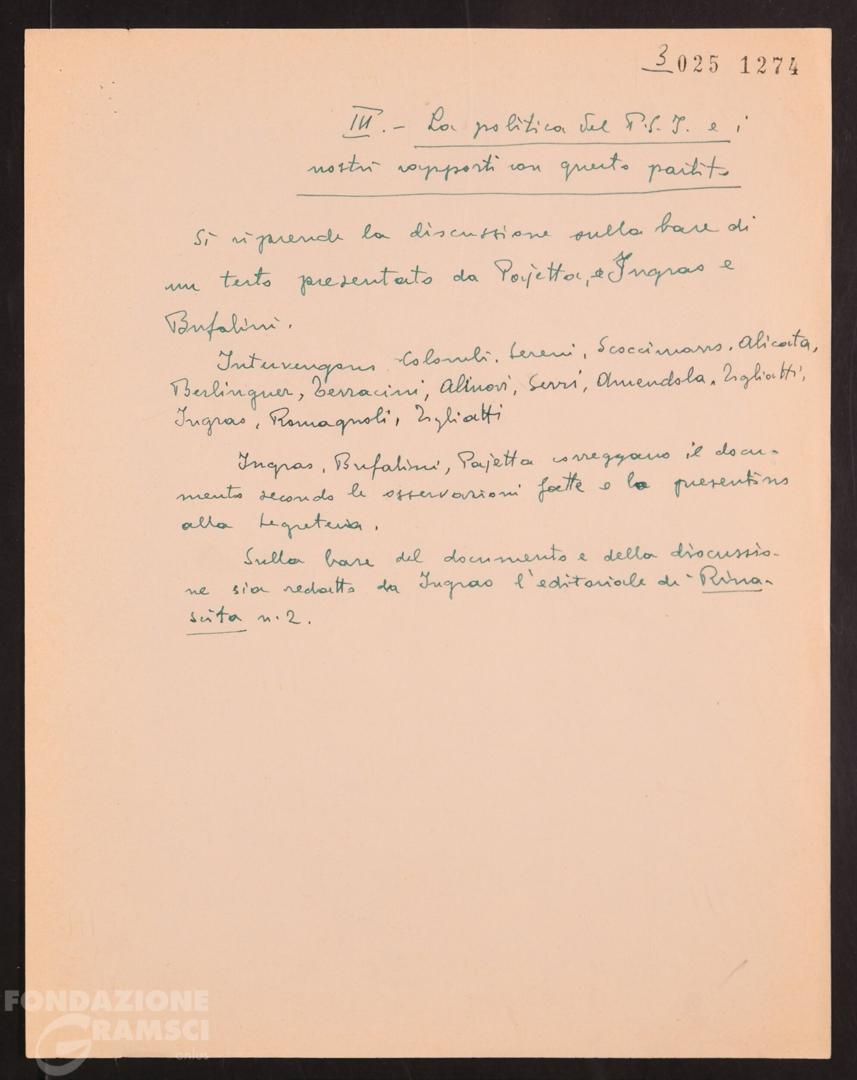 3 025 1274
III. - La politica del P.S.I. e i
nostri rapporti con questo partito
Si riprende la discussione sulla base di
un testo presentato da Pajetta, e Ingrao e
Bufalini.
Intervengono Colombi, Sereni, Scoccimarro, Alicata,
Berlinguer, Terracini, Alinovi, Serri, Amendola, Togliatti,
Ingrao, Romagnoli, Togliatti
Ingrao, Bufalini, Pajetta correggano il docu-
mento secondo le osservazioni fatte e lo presentino
alla Segreteria.
Sulla base del documento e della discussio-
ne sia redatto da Ingrao l'editoriale di Rina-
scita n. 2.
FONDAZIONE
GRAMSCI
onlus